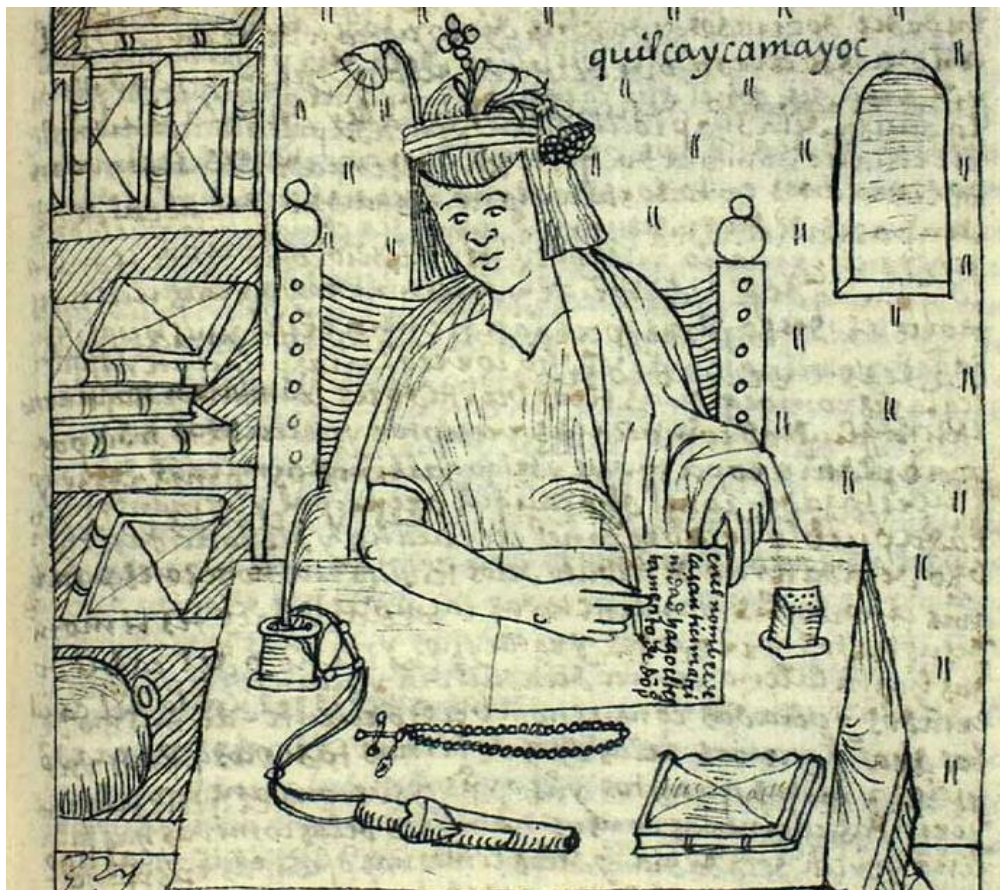 quilcaycamayoc
enel nombre de
lasanticima tri
nidad hago eltes
tamento de dõ p